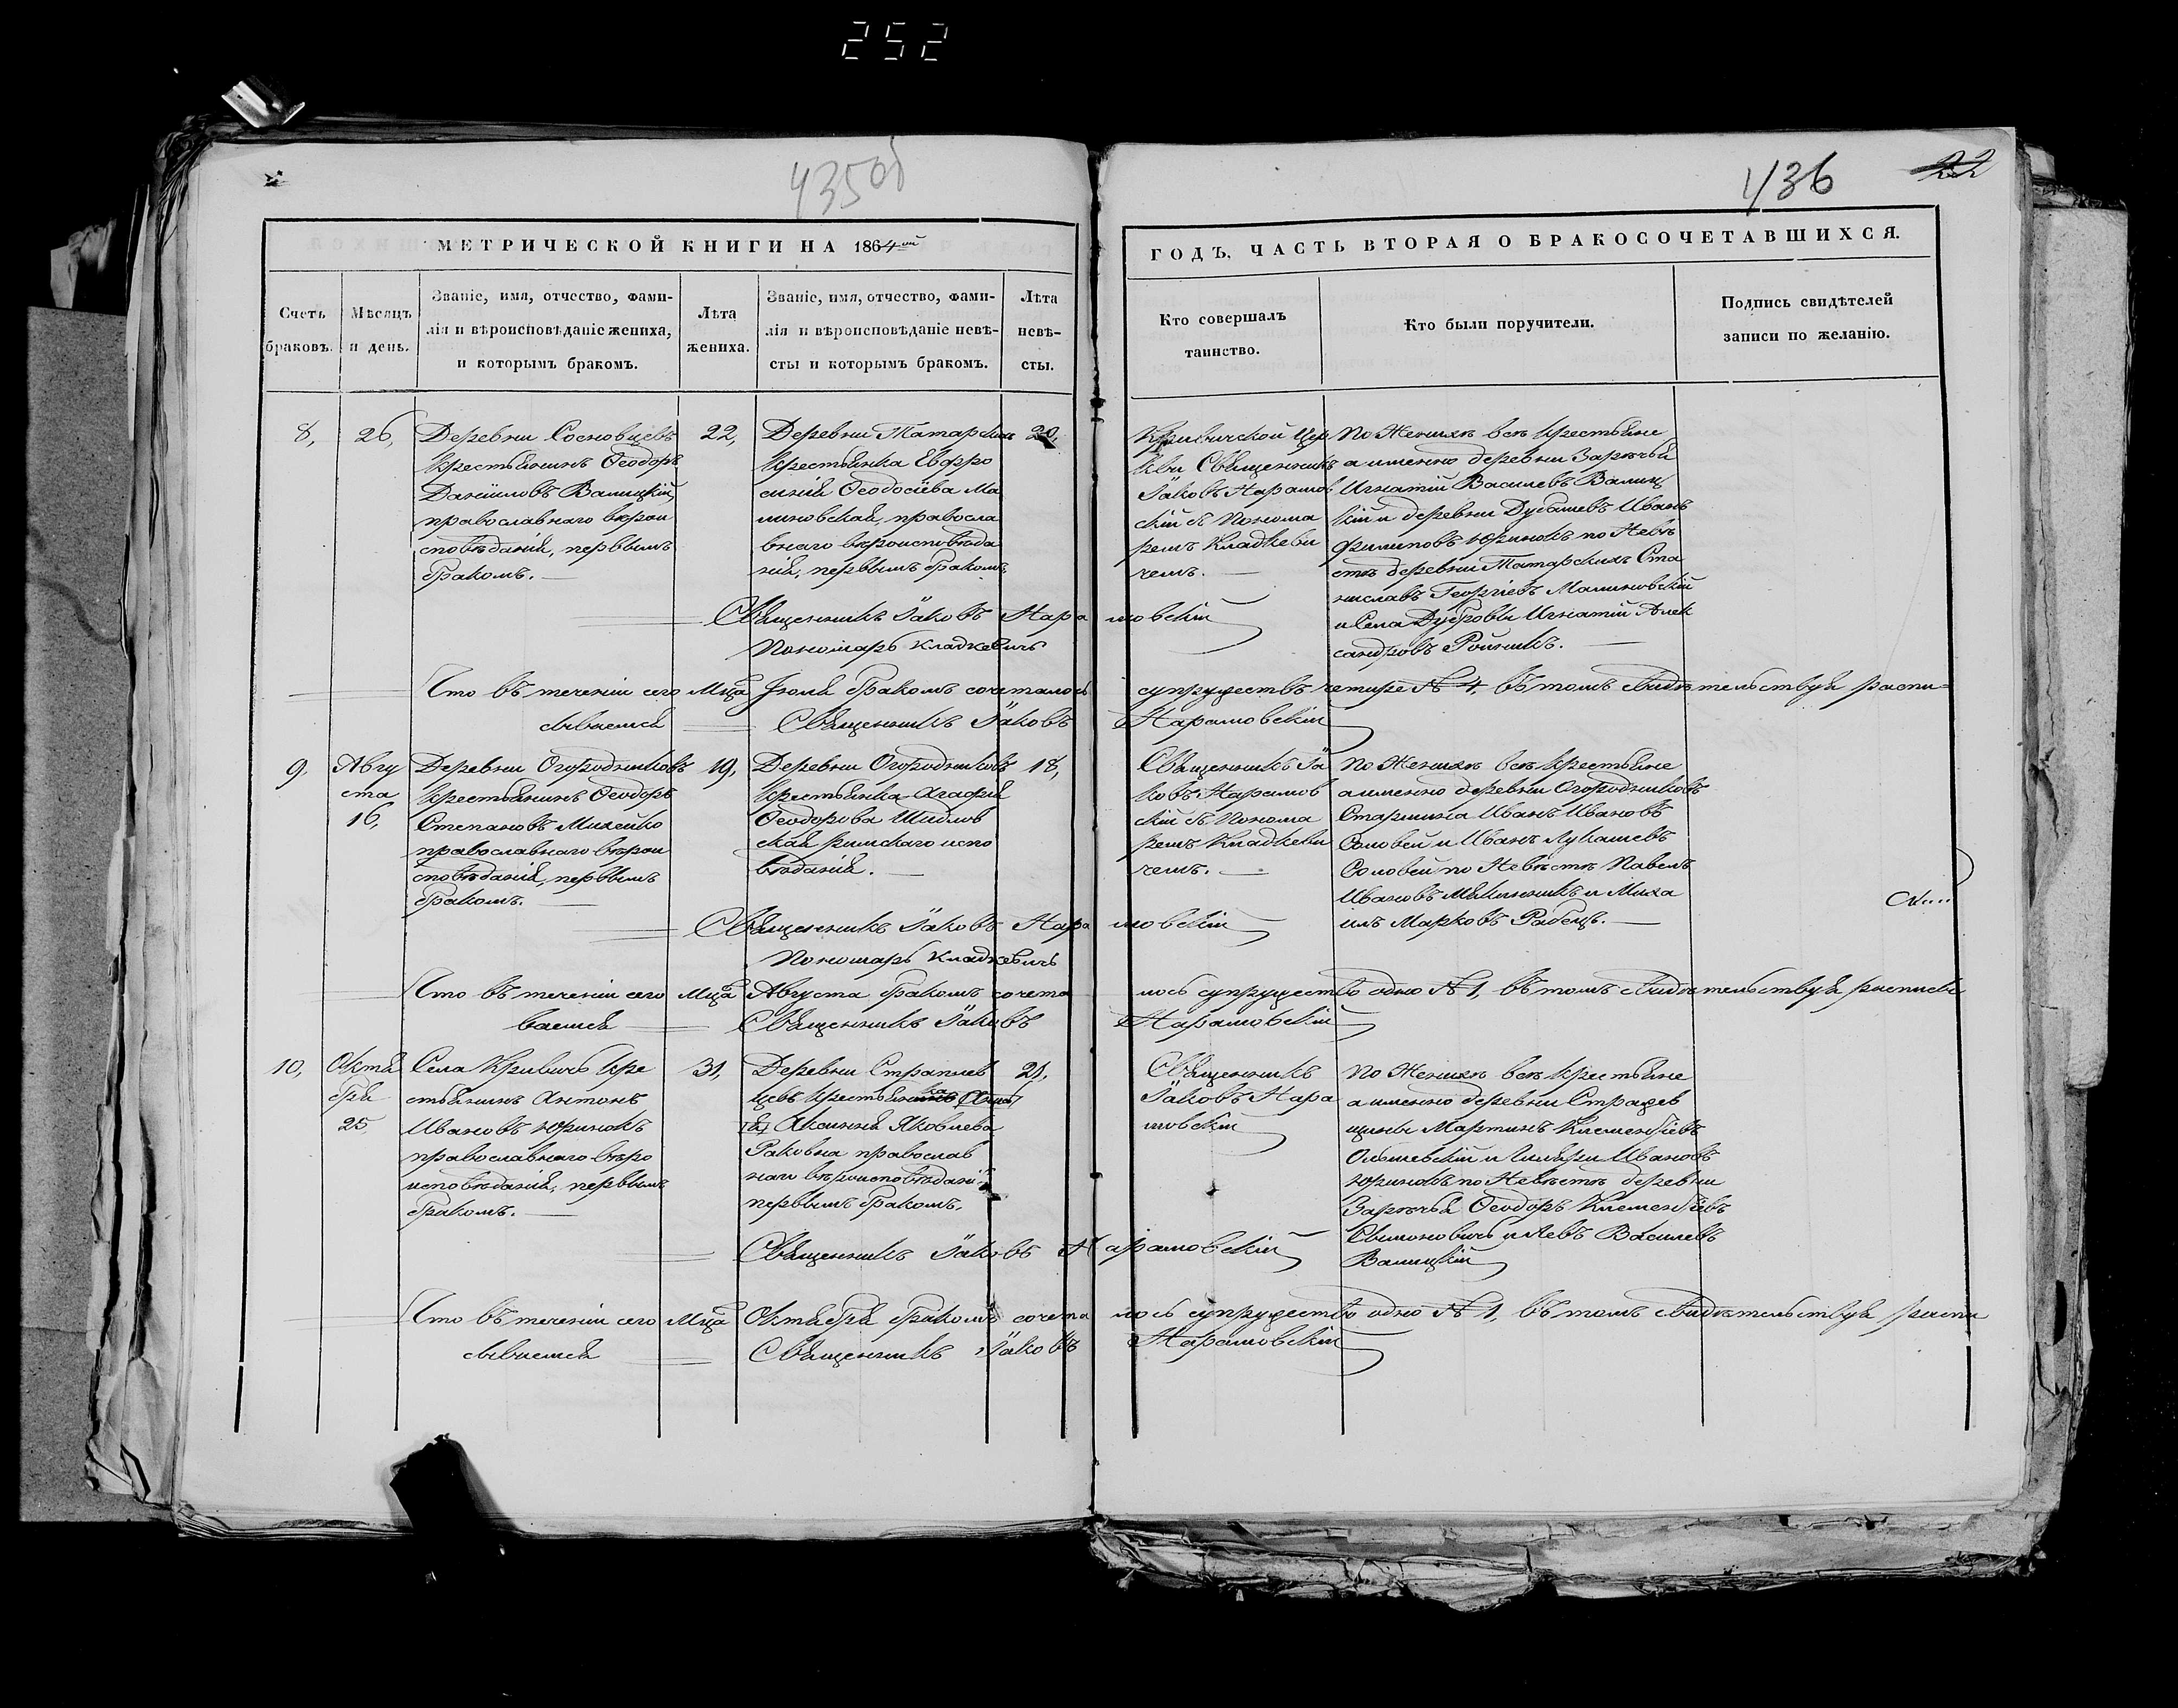 252
435об
436
22
МЕТРИЧЕСКОЙ КНИГИ НА 1864ый
ГОДЪ, ЧАСТЬ ВТОРАЯ О БРАКОСОЧЕТАВШИХСЯ.
Счетъ
браковъ.
Мѣсяцъ
и день.
Званіе, имя, отчество, фами-
лія и вѣроисповѣданіе жениха,
и которымъ бракомъ.
Лѣта
жениха.
Званіе, имя, отчество, фами-
лія и вѣроисповѣданіе невѣ-
сты и которымъ бракомъ.
Лѣта
невѣ-
сты.
Кто совершалъ
таинство.
Кто были поручители.
Подпись свидѣтелей
записи по желанію.
8,
26,
Деревни Сосновцевъ
крестьянинъ Ѳеодоръ
Даніиловъ Валицкій
православнаго вѣрои
сповѣданія, первымъ
бракомъ.
22,
Деревни Татарскихъ
крестьянка Евфро
синія Ѳеодосіева Ма
линовская, правосла
внаго вѣроисповѣда
нія, первымъ бракомъ
20,
Кривичской Цер
кви Священникъ
Іаковъ Нарамов
скій съ Понома
ремъ Кладкеви
чемъ.
По Женихѣ всѣ крестьяне
а именно деревни Зарѣчья
Игнатій Васильевъ Валиц
кій и деревни Дубашевъ Иванъ
Филиповъ Юринокъ по Невѣ
стѣ деревни Татарскихъ Ста
ниславъ Георгіевъ Малиновскій
и Села Дубровы Игнатій Алек
сандровъ Ройникъ.
Священникъ Іаковъ Нарамовскій
Пономарь Кладкевичъ
Что въ теченіи сего мца Іюля бракомъ сочеталось супружествъ четыре № 4, въ томъ свидѣтельствуя распи-
сываемся Священникъ Іаковъ Нарамовскій
9,
Авгу
ста
16,
Деревни Огородниковъ
крестьянинъ Ѳеодоръ
Степановъ Михейко
православнаго вѣрои
сповѣданія, первымъ
бракомъ.
19,
Деревни Огородниковъ
крестьянка Агафія
Ѳеодорова Шидлов
ская римскаго испо
вѣданія.
18,
Священникъ Іа
ковъ Нарамов
скій съ Понома
ремъ Кладкеви
чемъ.
По Женихѣ всѣ крестьяне
а именно деревни Огородниковъ
Старшина Иванъ Ивановъ
Соловей и Иванъ Лукашевъ
Соловей по Невѣстѣ Павелъ
Ивановъ и Миха
илъ Марковъ Рабецъ.
Священникъ Іаковъ Нарамовскій
Пономарь Кладкевичъ
Что въ теченіи сего мца Августа бракомъ сочета лось супружество одно № 1, въ томъ свидѣтельствуя расписы
ваемся Священникъ Іаковъ Нарамовскій
10,
Октя
бря
25
Села Кривичъ кре
стьянинъ Антонъ
Ивановъ Юринокъ
православнаго вѣро
исповѣданія, первымъ
бракомъ.
31,
Деревни Страпиев
цевъ крестьянка
Аксинія Яковлева
Раковна православ
наго вѣроисповѣдані
первымъ бракомъ.
21,
Священникъ
Іаковъ Нара
мовскій
По Женихѣ всѣ крестьяне
а именно деревни
щины Мартинъ Климентіевъ
Ольшевскій и Ивановъ
Юринокъ по Невѣстѣ деревни
Зарѣчья Ѳеодоръ Климентіевъ
Сымоновичъ и Левъ Васильевъ
Валицкій
Священникъ Іаковъ Нарамовскій
Что въ теченіи сего мца Октября бракомъ сочета лось супружество одно № 1, въ томъ свидѣтельствуя распи
сываемся Священникъ Іаковъ Нарамовскій